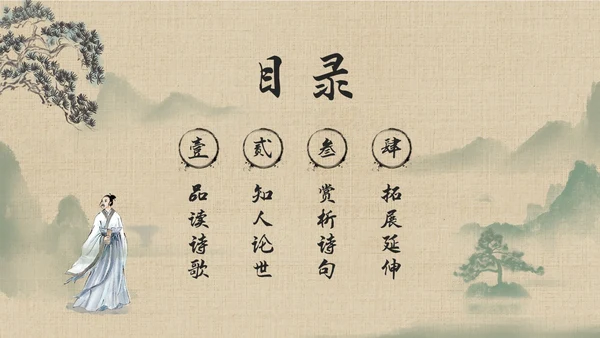 目录
壹
品读诗歌
贰
知人论世
叁
赏析诗句
肆
拓展延伸